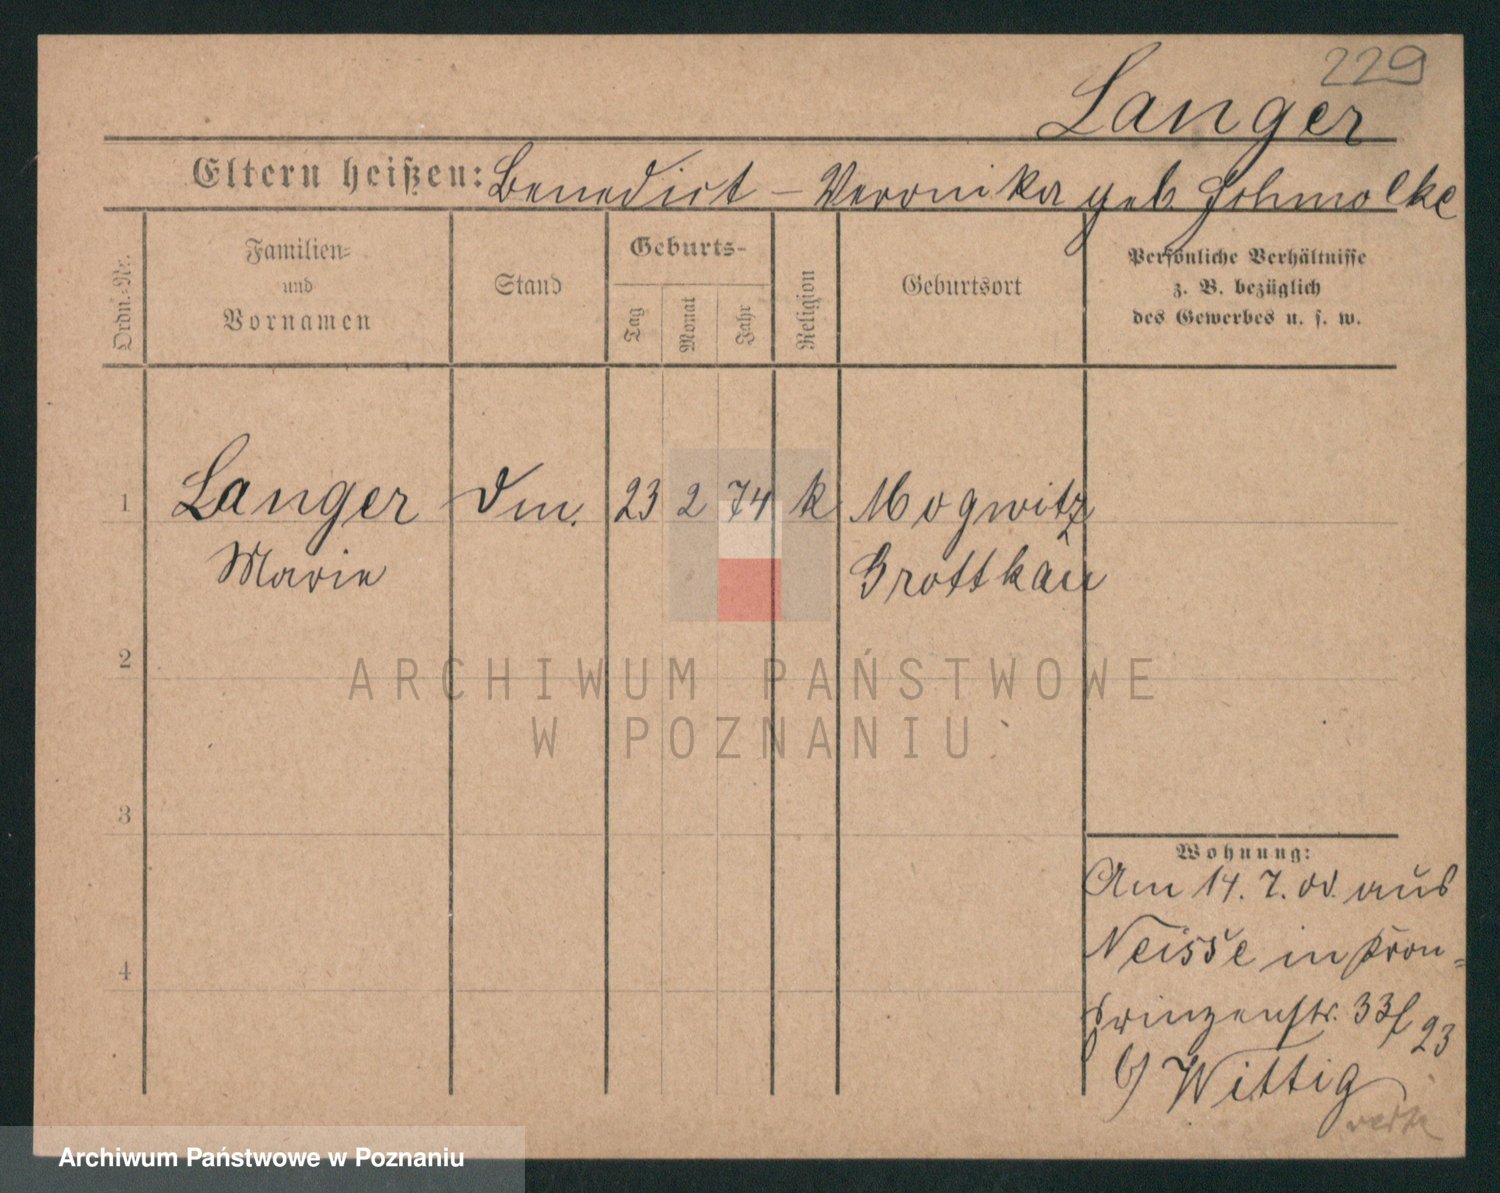 229
Langer
Eltern heißen: Benedict – Veronika geb. Schmolke
Ordn.-Nr.
Familien-
und
Vornamen
Stand
Geburts-
Tag
Monat
Jahr
Religion
Geburtsort
Persönliche Verhältnisse
z. B. bezüglich
des Gewerbes u. s. w.
1 Langer Dm. 23 2 74 k Mogwitz
Marie Grottkau
2
3
4
ARCHIWUM PAŃSTWOWE
W POZNANIU
Wohnung:
Am 14. 7. 00. aus
Neisse in Kron-
prinzenstr. 33/
23
b/ Wittig
Archiwum Państwowe w Poznaniu